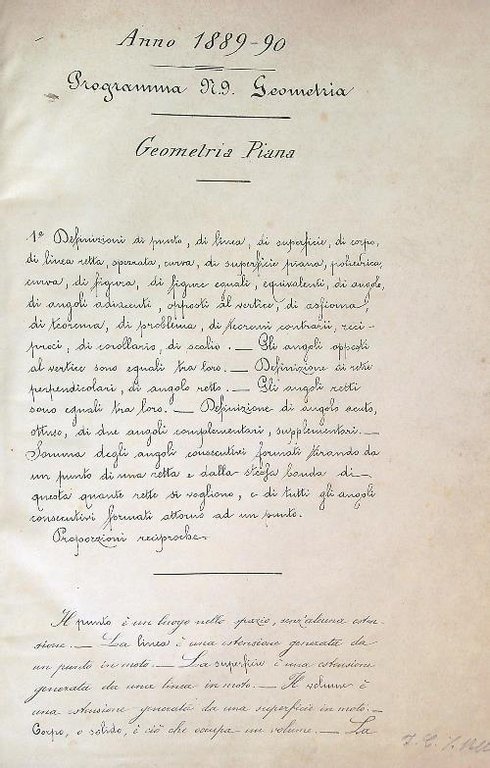 Anno 1889-90
Programma N.9. Geometria
Geometria Piana
1º Definizioni di punto, di linea, di superficie, di corpo,
di linea retta, spezzata, curva, di superficie piana, poliedrica,
curva, di figura, di figure eguali, equivalenti, di angolo,
di angoli adiacenti, opposti al vertice, di assioma,
di teorema, di problema, di teoremi contrarii, reci-
proci, di corollario, di scolio. — Gli angoli opposti
al vertice sono eguali tra loro. — Definizione di rette
perpendicolari, di angolo retto. — Gli angoli retti
sono eguali tra loro. — Definizione di angolo acuto,
ottuso, di due angoli complementari, supplementari. —
Somma degli angoli consecutivi formati tirando da
un punto di una retta e dalla stessa banda di
questa quante rette si vogliono, e di tutti gli angoli
consecutivi formati attorno ad un punto.
Proporzioni reciproche.
Il punto è un luogo nello spazio, senz'alcuna esten-
sione. — La linea è una estensione generata da
un punto in moto. — La superficie è una estensione
generata da una linea in moto. — Il volume è
una estensione generata da una superficie in moto. —
Corpo, o solido, è ciò che occupa un volume. — La